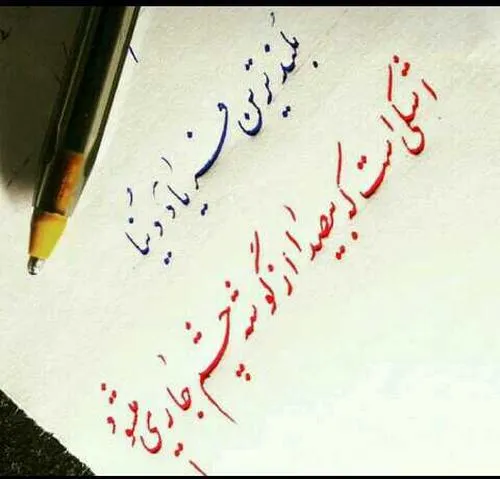 بلندترین فریاد دنیا
اشکی است که بیصدا از گوشه چشم جاری میشود